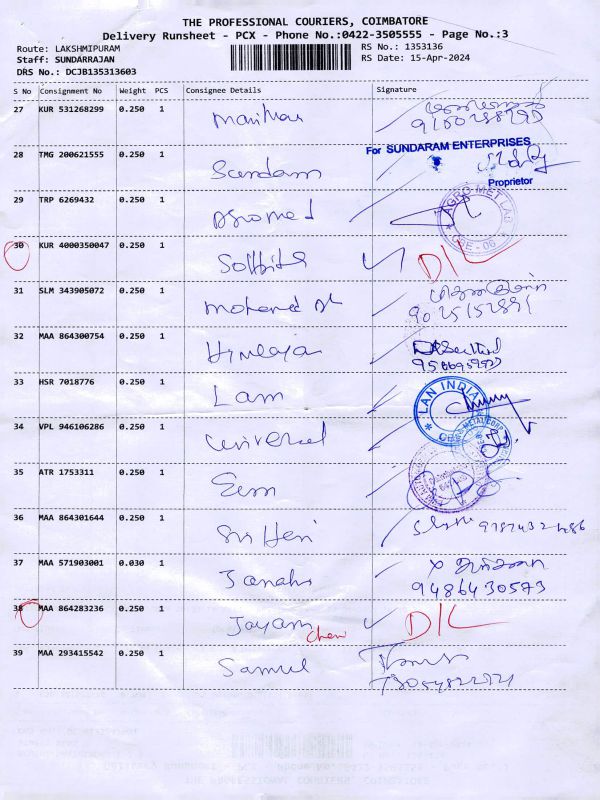 THE PROFESSIONAL COURIERS, COIMBATORE
Delivery Runsheet - PCX - Phone No.:0422-3505555 - Page No.:3
Route: LAKSHMIPURAM
RS No.: 1353136
Staff: SUNDARRAJAN
RS Date: 15-Apr-2024
DRS No.: DCJB135313603
S No Consignment No Weight PCS Consignee Details Signature
27 KUR 531268299 0.250 1
For SUNDARAM ENTERPRISES
28 TMG 200621555 0.250 1 Sundaram
Proprietor
29 TRP 6269432 0.250 1 Agromed
AGRO MET LAB
CBE - 06
30 KUR 4000350047 0.250 1 D/L
31 SLM 343905072 0.250 1
9025152891
32 MAA 864300754 0.250 1 Himalaja
33 HSR 7018776 0.250 1 Lam
LAN INDIA
34 VPL 946106286 0.250 1 Universal
35 ATR 1753311 0.250 1
36 MAA 864301644 0.250 1 Sri Hari
37 MAA 571903001 0.030 1 Janaki
9486430573
38 MAA 864283236 0.250 1 Jayam D/L
39 MAA 293415542 0.250 1 Samuel